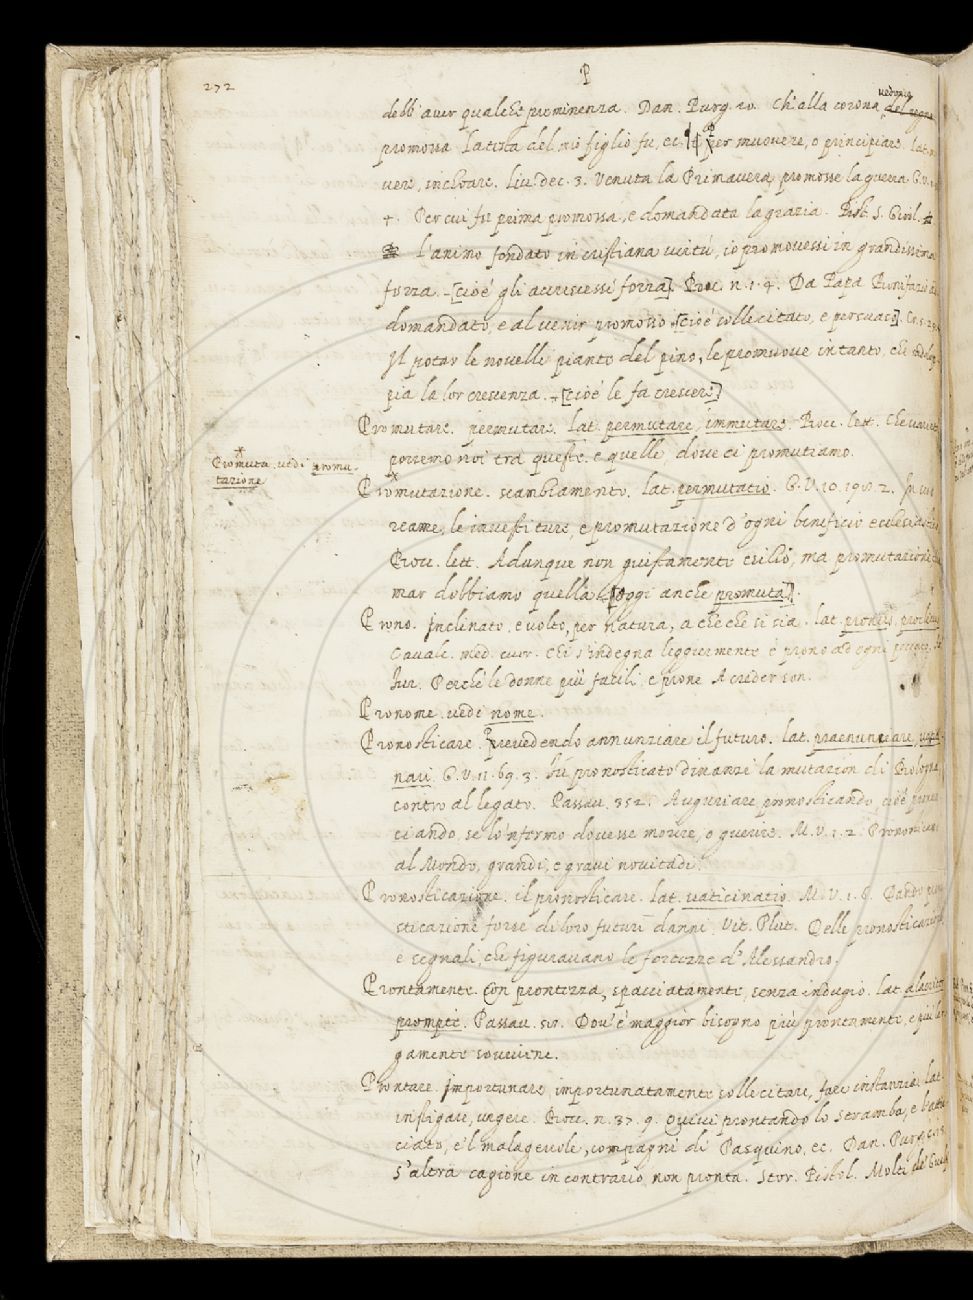 272
P
debb' aver qualche preminenza. Dan. Purg. 20. Ch' alla corona vedova del regno
promossa La testa del mio figlio fu, ec. ¶ Per muovere, o principiare. lat.
vere, inchoare. Liv. dec. 3. Venuta la Primavera, promosse la guerra G.V.
4. Per cui fu prima promossa, e domandata la grazia. Pist. S. Girol.
L'animo fondato in cristiana virtù, io promovessi in grandissima
forza. [cioè gli accrescessi forza] Bocc. n. 1. 4. Da Papa Bonifazio
domandato, e al venir promosso. [cioè sollecitato, e persuaso]. Cr. 5.
Il potar le novelle piante del pino, le promuove in tanto, che
pia la lor crescenza. [cioè le fa crescere]
Promutare. permutare. lat. permutare, immutare. Bocc. lett. Che
porremo noi tra queste, e quelle, dove ci promutiamo.
* Promuta. vedi promu-
tazione
Promutazione*. scambiamento. lat. permutatio. G.V. 10. 2. In
reame, le investiture, e promutazione d'ogni beneficio ecclesiastico
Bocc. lett. Adunque non giustamente esilio, ma promutazione
mar dobbiamo quella [oggi anche promuta].
Prono. Inclinato, e volto, per natura, a che che si sia. lat. pronus, proclivis
Cavalc. med. cuor. Chi s'indegna leggiermente è prono ad ogni
Fur. Perchè le donne più facili, e prone A creder son.
Pronome. vedi nome.
Pronosticare. Prevedendo annunziare il futuro. lat. praenunciare,
nari. G.V. 11. 69. 3. Fu pronosticato dinanzi la mutazion di Bologna
contro al legato. Passav. 352. Auguriare, pronosticando, cioè
ciando, se lo 'nfermo dovesse morire, o guerire. M.V. 1. 2.
al Mondo, grandi, e gravi novitadi.
Pronosticazione. il pronosticare. lat. vaticinatio. M.V. 1. Dando
sticazione forse di loro futuri danni. Vit. Plut. Delle pronosticazioni
e segnali, che figuravano le fortezze d'Alessandro.
Prontamente. Con prontezza, spacciatamente, senza indugio. lat.
prompte. Passav. Dov'è maggior bisogno più prontamente, e più
gamente sovviene.
Prontare. Importunare, importunatamente sollecitare, fare instanzia. lat.
instigare, urgere. Bocc. n. 37. 9. Quivi prontando lo Stramba, e
ciato, e 'l malagevole, compagni di Pasquino, ec. Dan. Purg.
S'altra cagione in contrario non pronta. Stor. Pistol. Molti de'